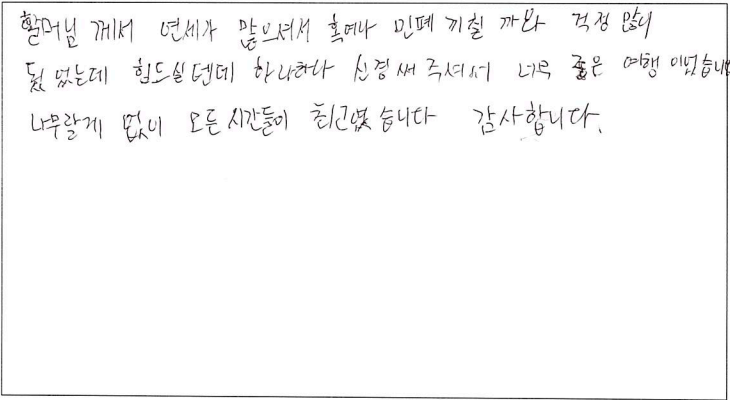 할머님 께서 연세가 많으셔서 혹여나 민폐 끼칠 까봐 걱정 많이
됬었는데 힘드실텐데 하나하나 신경써 주셔서 너무 좋은 여행 이었습니다
나무랄게 없이 모든 시간들이 최고였습니다 감사합니다.